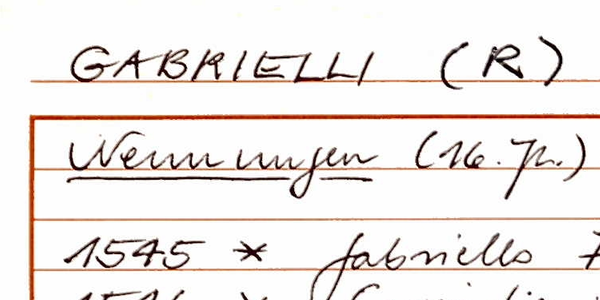 GABRIELLI (R)
Nennungen (16. Jh.)
1545 * Gabriello